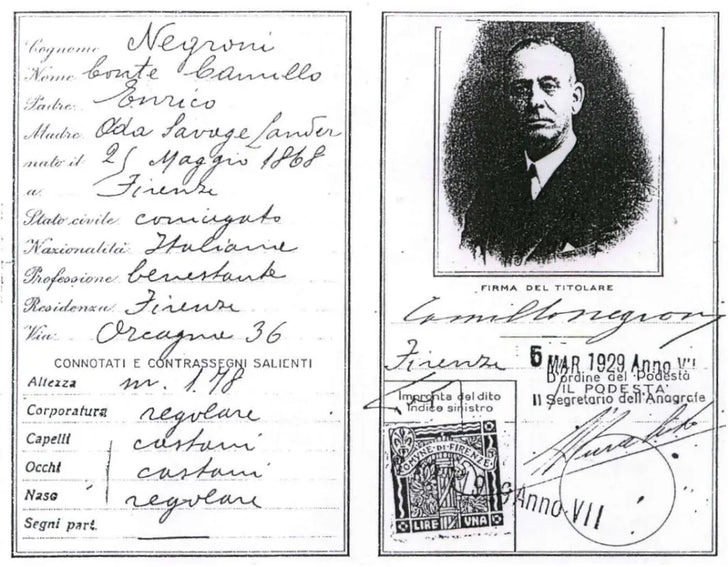 Cognome Negroni
Nome Conte Camillo
Padre Enrico
Madre Oda Savage Landor
nato il 25 Maggio 1868
a Firenze
Stato civile coniugato
Nazionalità Italiana
Professione benestante
Residenza Firenze
Via Orcagna 36
CONNOTATI E CONTRASSEGNI SALIENTI
Altezza m. 1.78
Corporatura regolare
Capelli castani
Occhi castani
Naso regolare
Segni part.
FIRMA DEL TITOLARE
Camillo Negroni
Firenze 6 MAR. 1929 Anno VII
D'ordine del Podestà
IL PODESTA'
Il Segretario dell'Anagrafe
Impronta del dito
indice sinistro
COMUNE·DI·FIRENZE
LIRE UNA
9 Anno VII